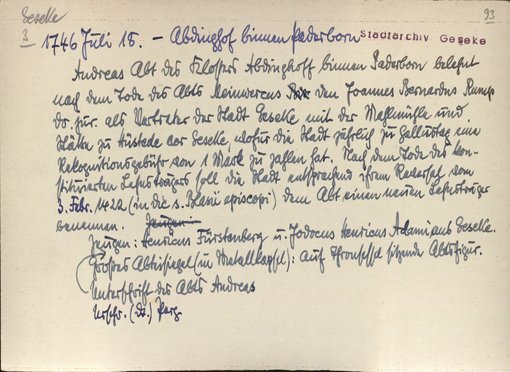 Geseke
3
93
1746 Juli 15. – Abdinghof binnen Paderborn
Stadtarchiv Geseke
Andreas Abt des Klosters Abdinghoff binnen Paderborn belehnt
nach dem Tode des Abts Meinwercus den Joannes Bernardus Rump
Dr. jur. als Vertreter der Stadt Geseke mit der Mahlmühle und
Stätte zu Hüstede vor Geseke, wofür die Stadt jährlich zu Gallustag eine
Rekognitionsgebühr von 1 Mark zu zahlen hat. Nach dem Tode des kon-
stituierten Lehnsträgers soll die Stadt entsprechend ihrem Reversal vom
3. Febr. 1422 (in die s. Blasii episcopi) dem Abt einen neuen Lehnsträger
benennen. Zeugen:
Zeugen: Henricus Fürstenberg u. Jodocus Henricus Adami aus Geseke.
Großes Abteisiegel (in Metallkapsel): auf Thronsessel sitzende Abtsfigur.
Unterschrift des Abts Andreas
Urschr. (Dt.) Perg.